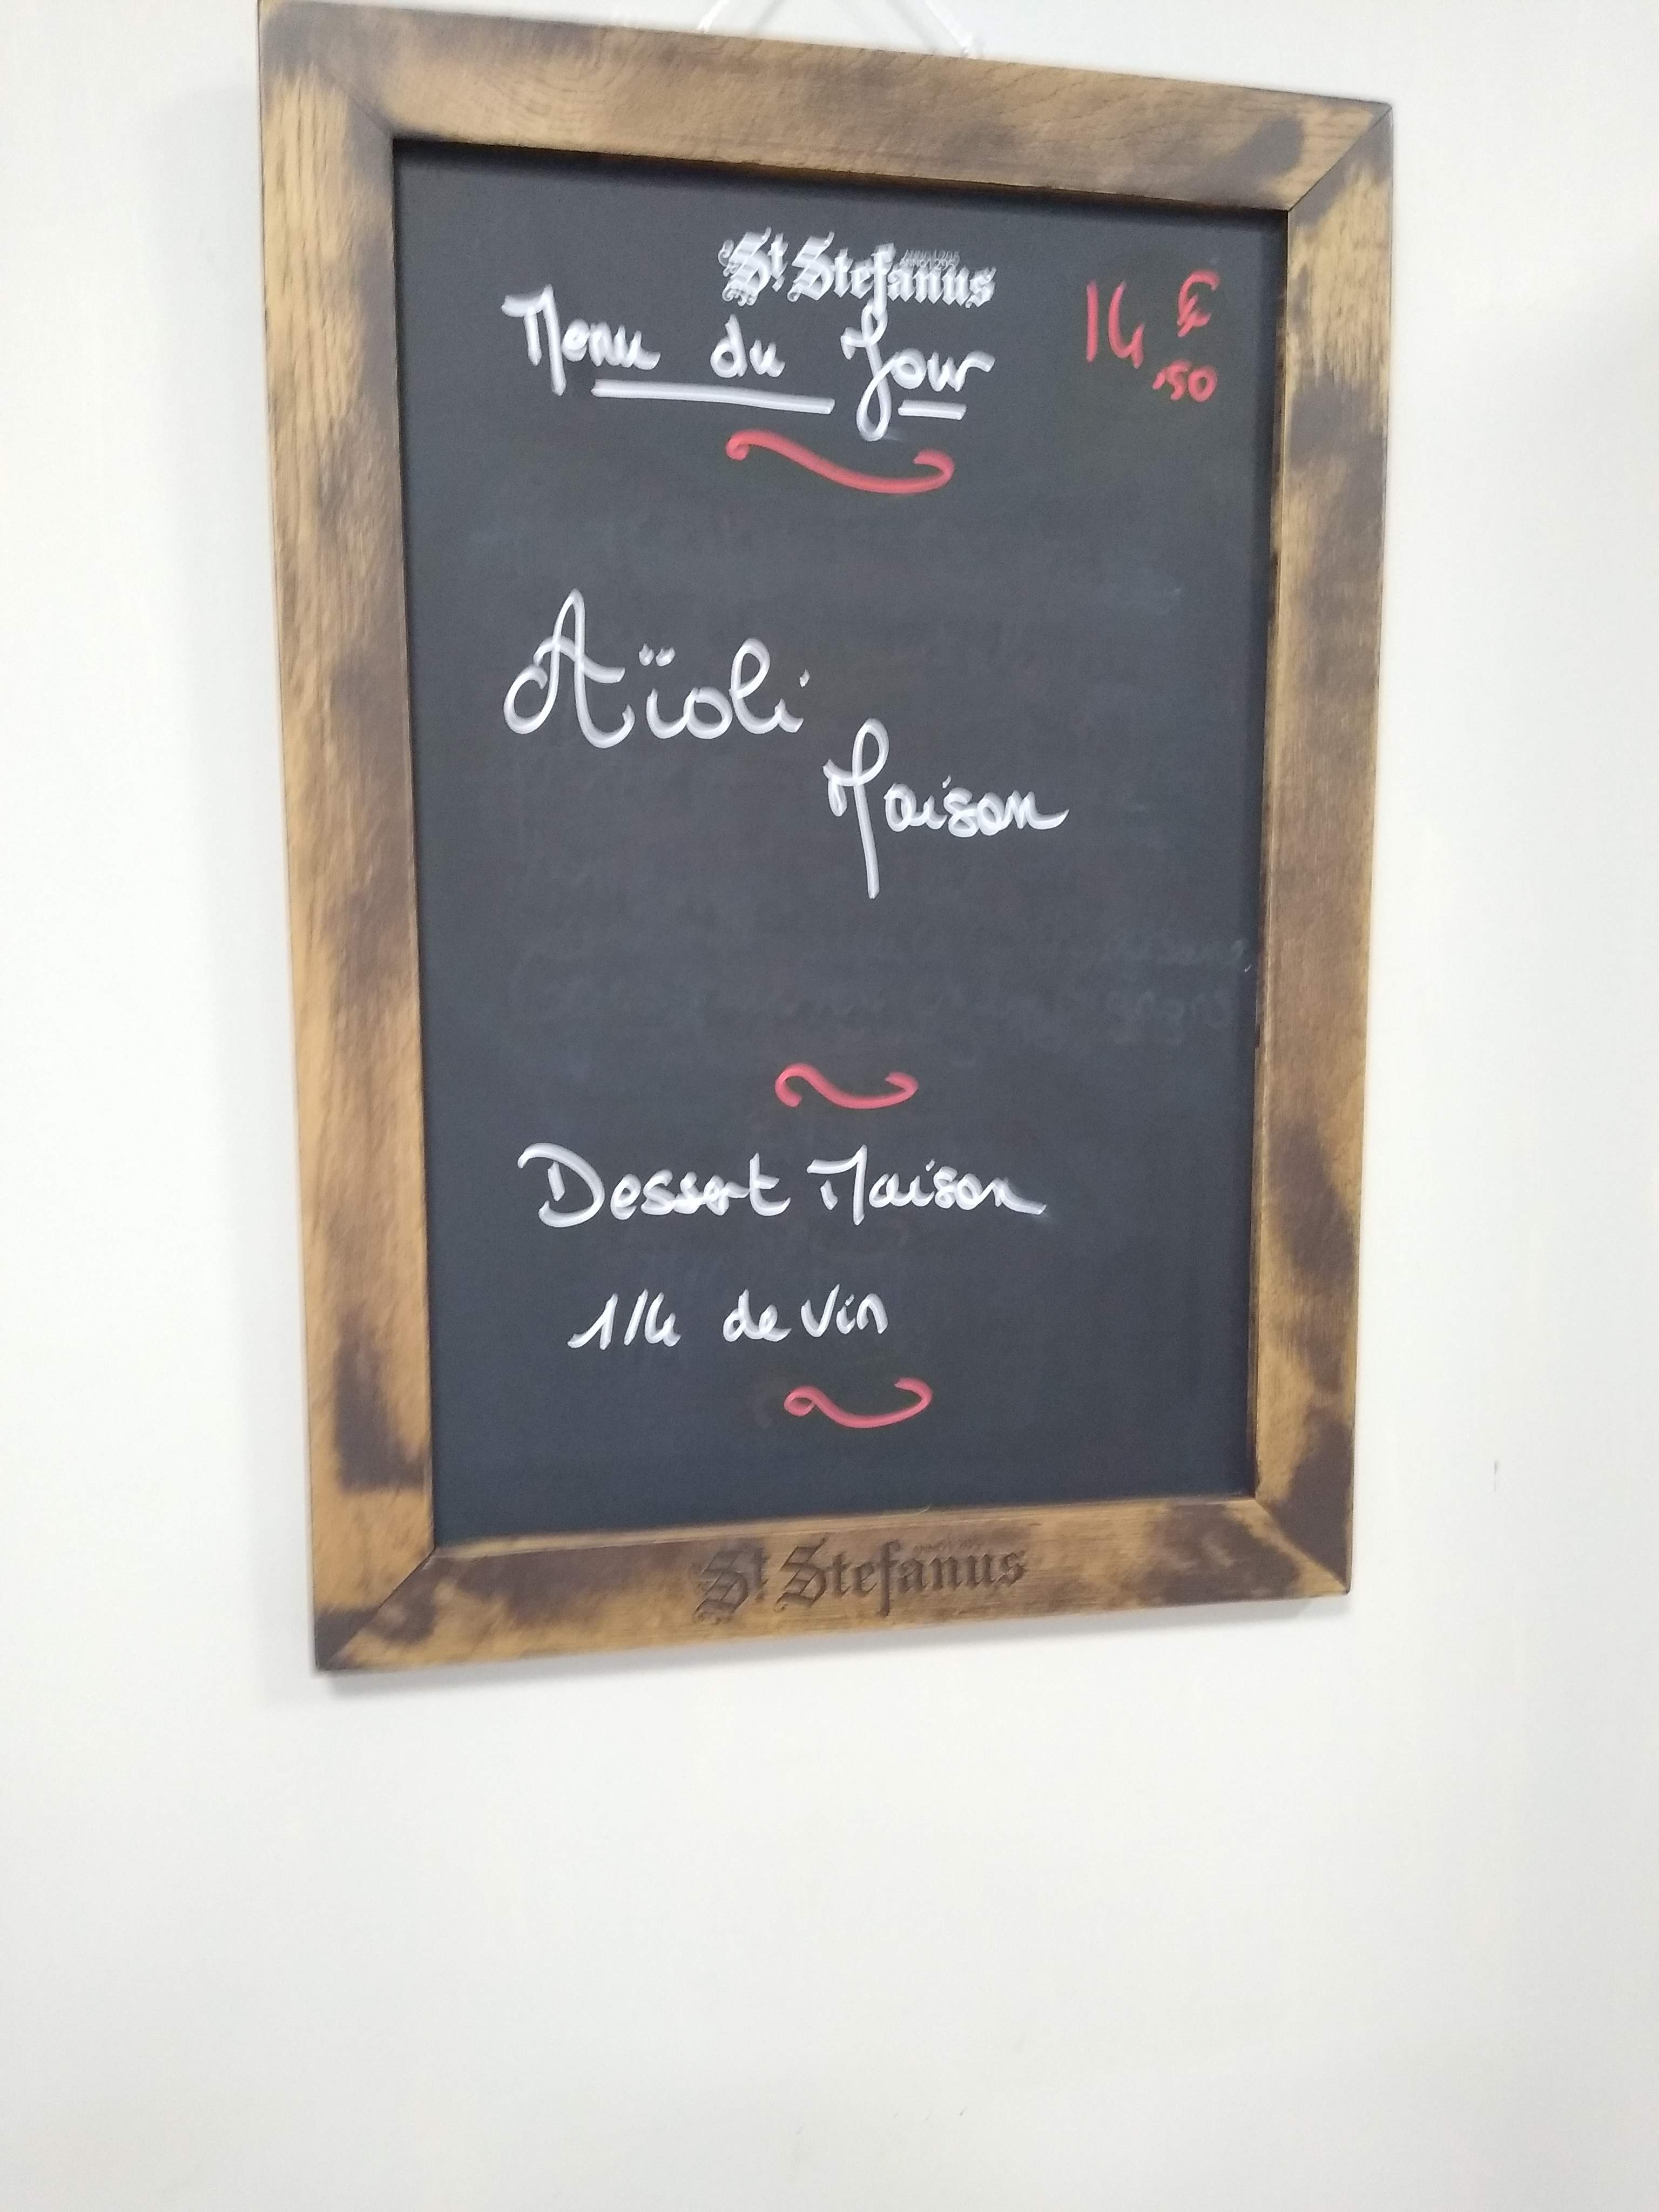 St Stefanus
Menu du Jour
14 €
,50
Aïoli
Maison
Dessert Maison
1/4 de Vin
St Stefanus